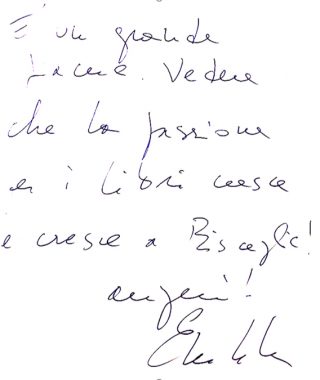 È un grande
piacere. Vedere
che la passione
per i libri cresce
e cresce a Bisceglie!
auguri!